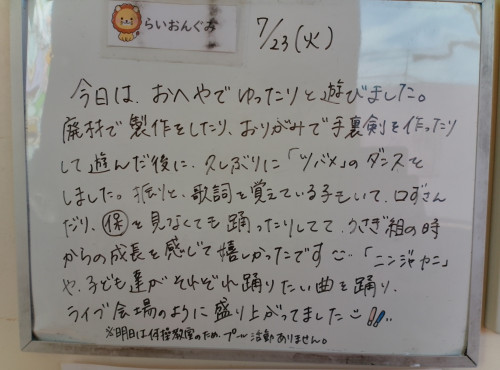 らいおんぐみ
7/23(火)
今日は、おへやでゆったりと遊びました。
廃材で製作をしたり、おりがみで手裏剣を作ったり
して遊んだ後に、久しぶりに「ツバメ」のダンスを
しました。振りと、歌詞を覚えている子もいて、口ずさん
だり、保を見なくても踊ったりしてて、うさぎ組の時
からの成長を感じて嬉しかったです 「ニンジャニ」
や、子ども達がそれぞれ踊りたい曲を踊り、
ライブ会場のように盛り上がってました
※明日は体操教室のため、プール活動ありません。